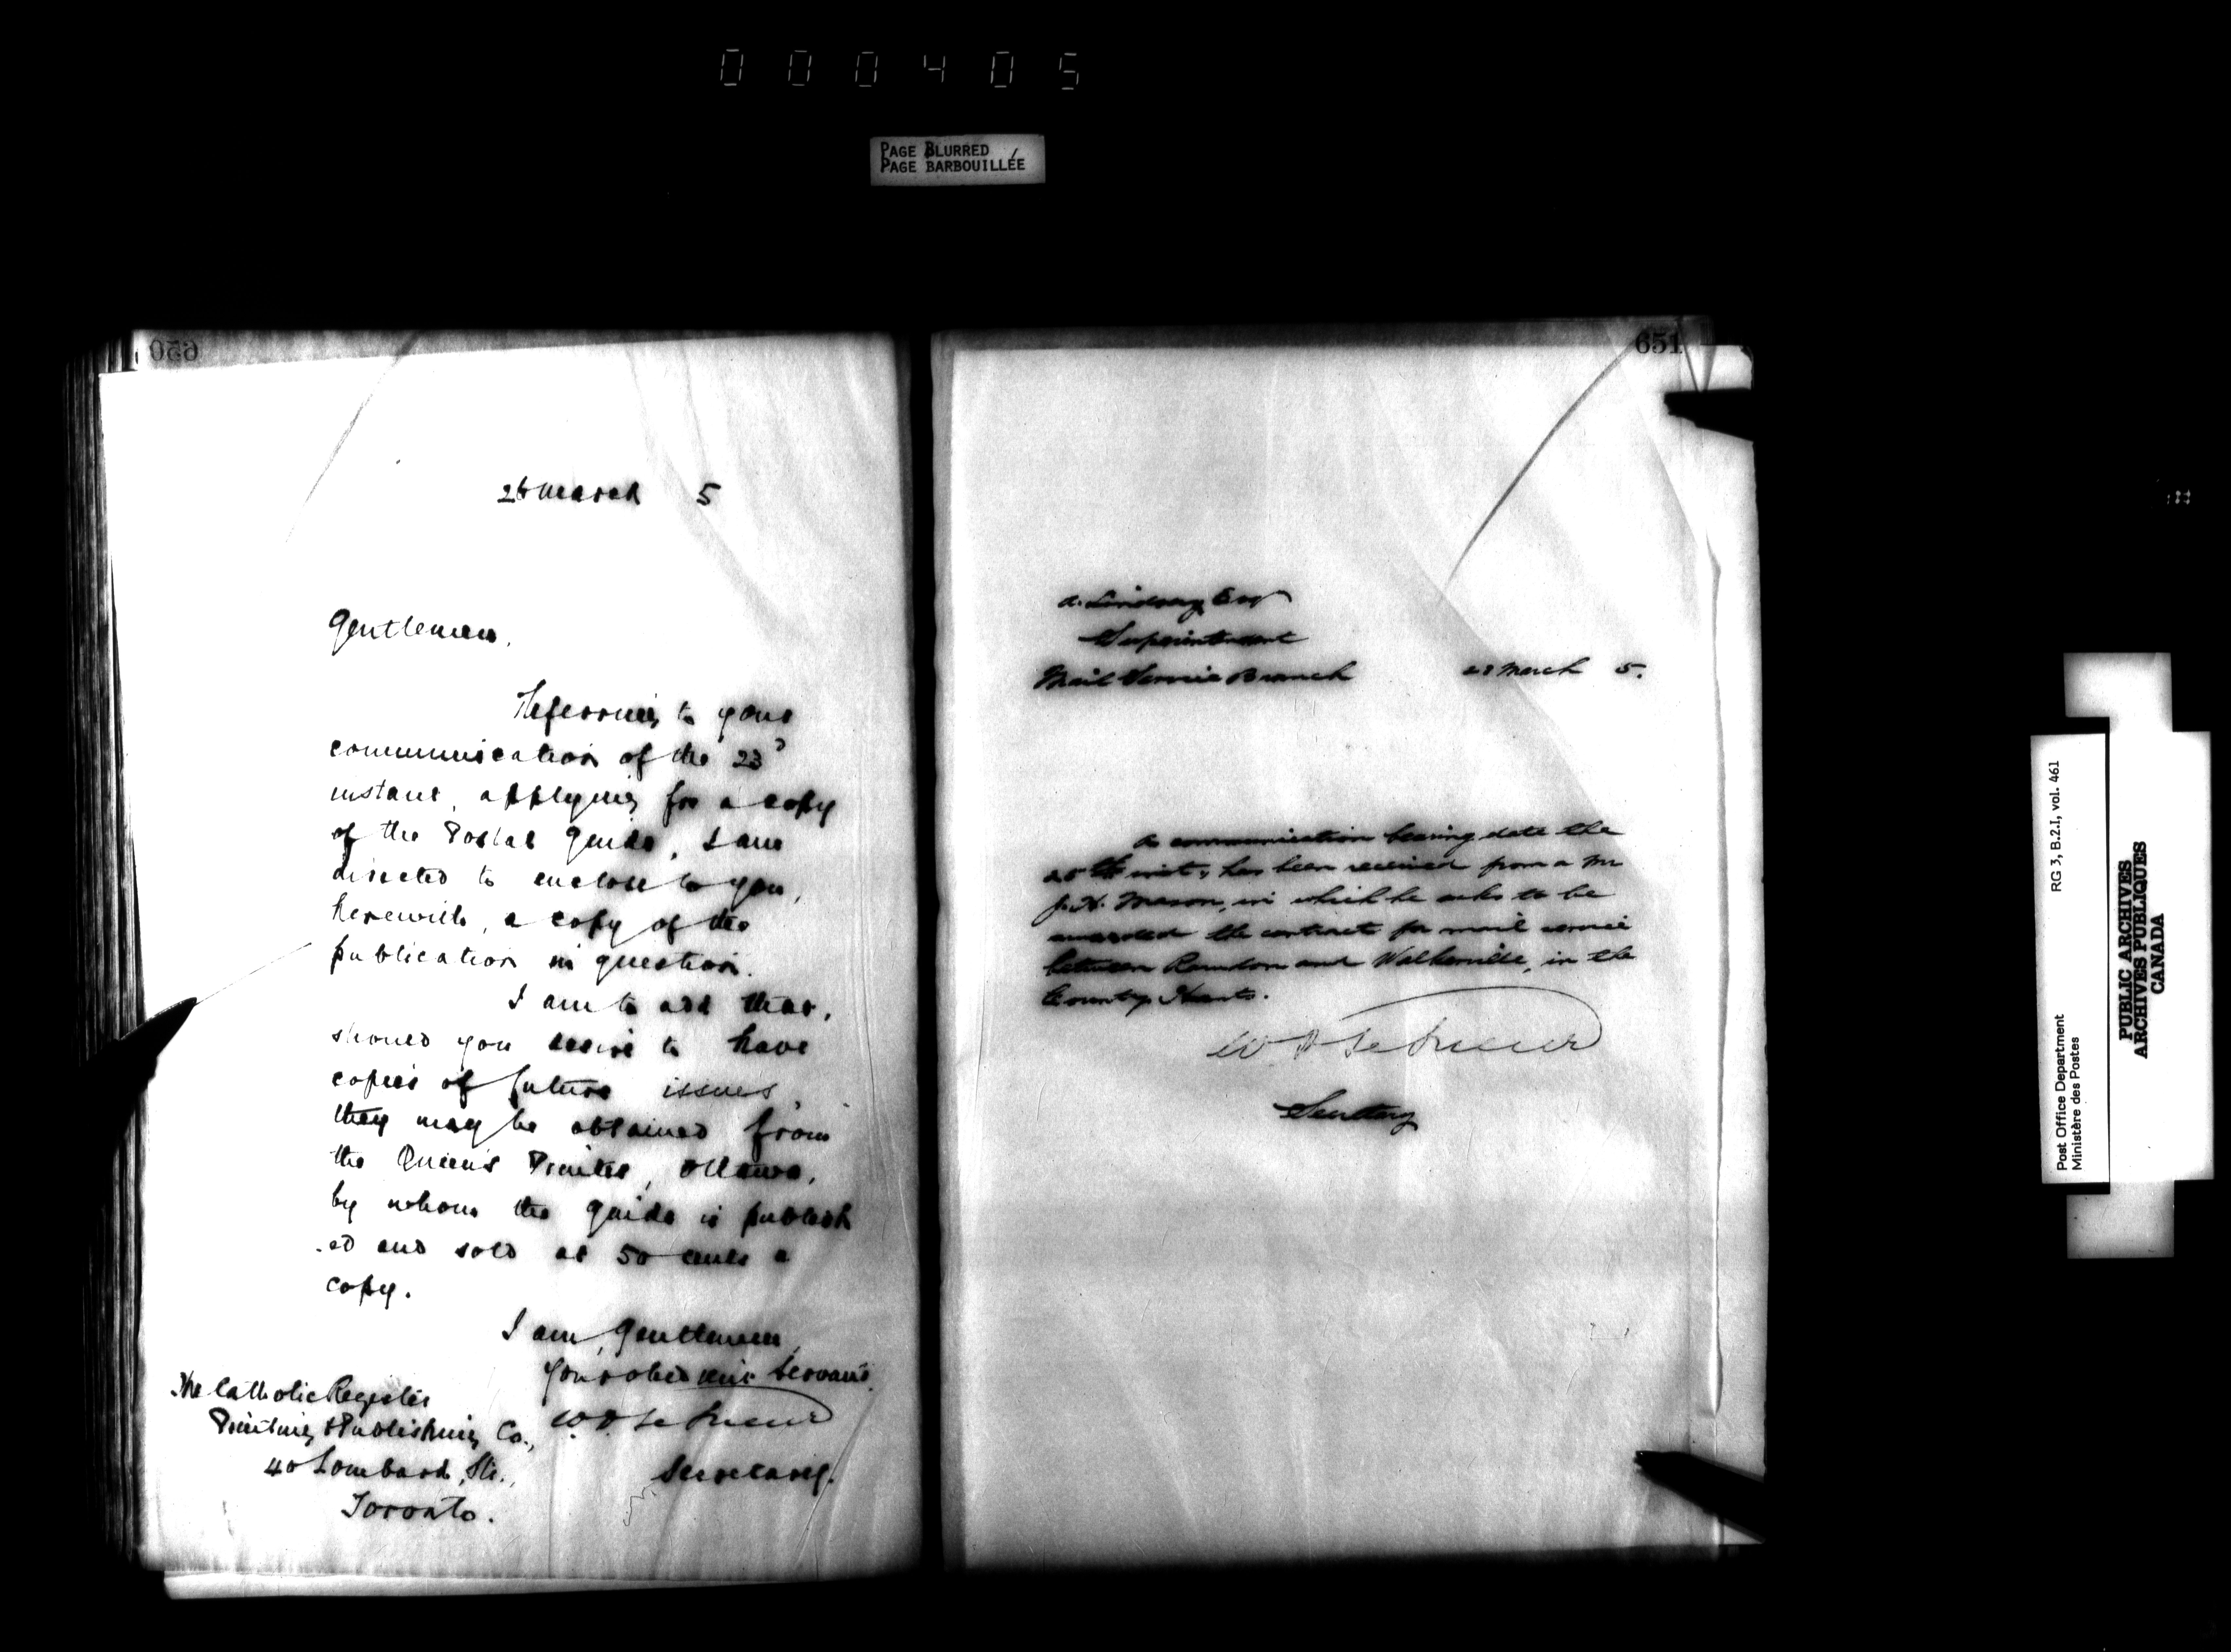 000405
PAGE BLURRED
PAGE BARBOUILLÉE
650
26 March 5
Gentlemen,
Referring to your
communication of the 23d
instant, applying for a copy
of the Postal Guide, I am
directed to enclose to you,
herewith, a copy of the
publication in question.
I am to add that,
should you desire to have
copies of future issues,
they may be obtained from
the Queen's Printer, Ottawa,
by whom the guide is publish
-ed and sold at 50 cents a
copy.
I am, Gentlemen,
Your obedient Servant,
W. D. LeSueur
Secretary.
The Catholic Register
Printing & Publishing Co.,
40 Lombard, St.,
Toronto.
651
A. Lindsay Esq
Superintendent
Mail Service Branch 28 March 5.
A communication bearing date the
25th inst, has been received from a Mr
J. H. Mason, in which he asks to be
awarded the contract for mail service
between Rawdon and Walkerville, in the
County Hants.
W D LeSueur
Secretary
Post Office Department
Ministère des Postes
RG 3, B.2.I, vol. 461
PUBLIC ARCHIVES
ARCHIVES PUBLIQUES
CANADA